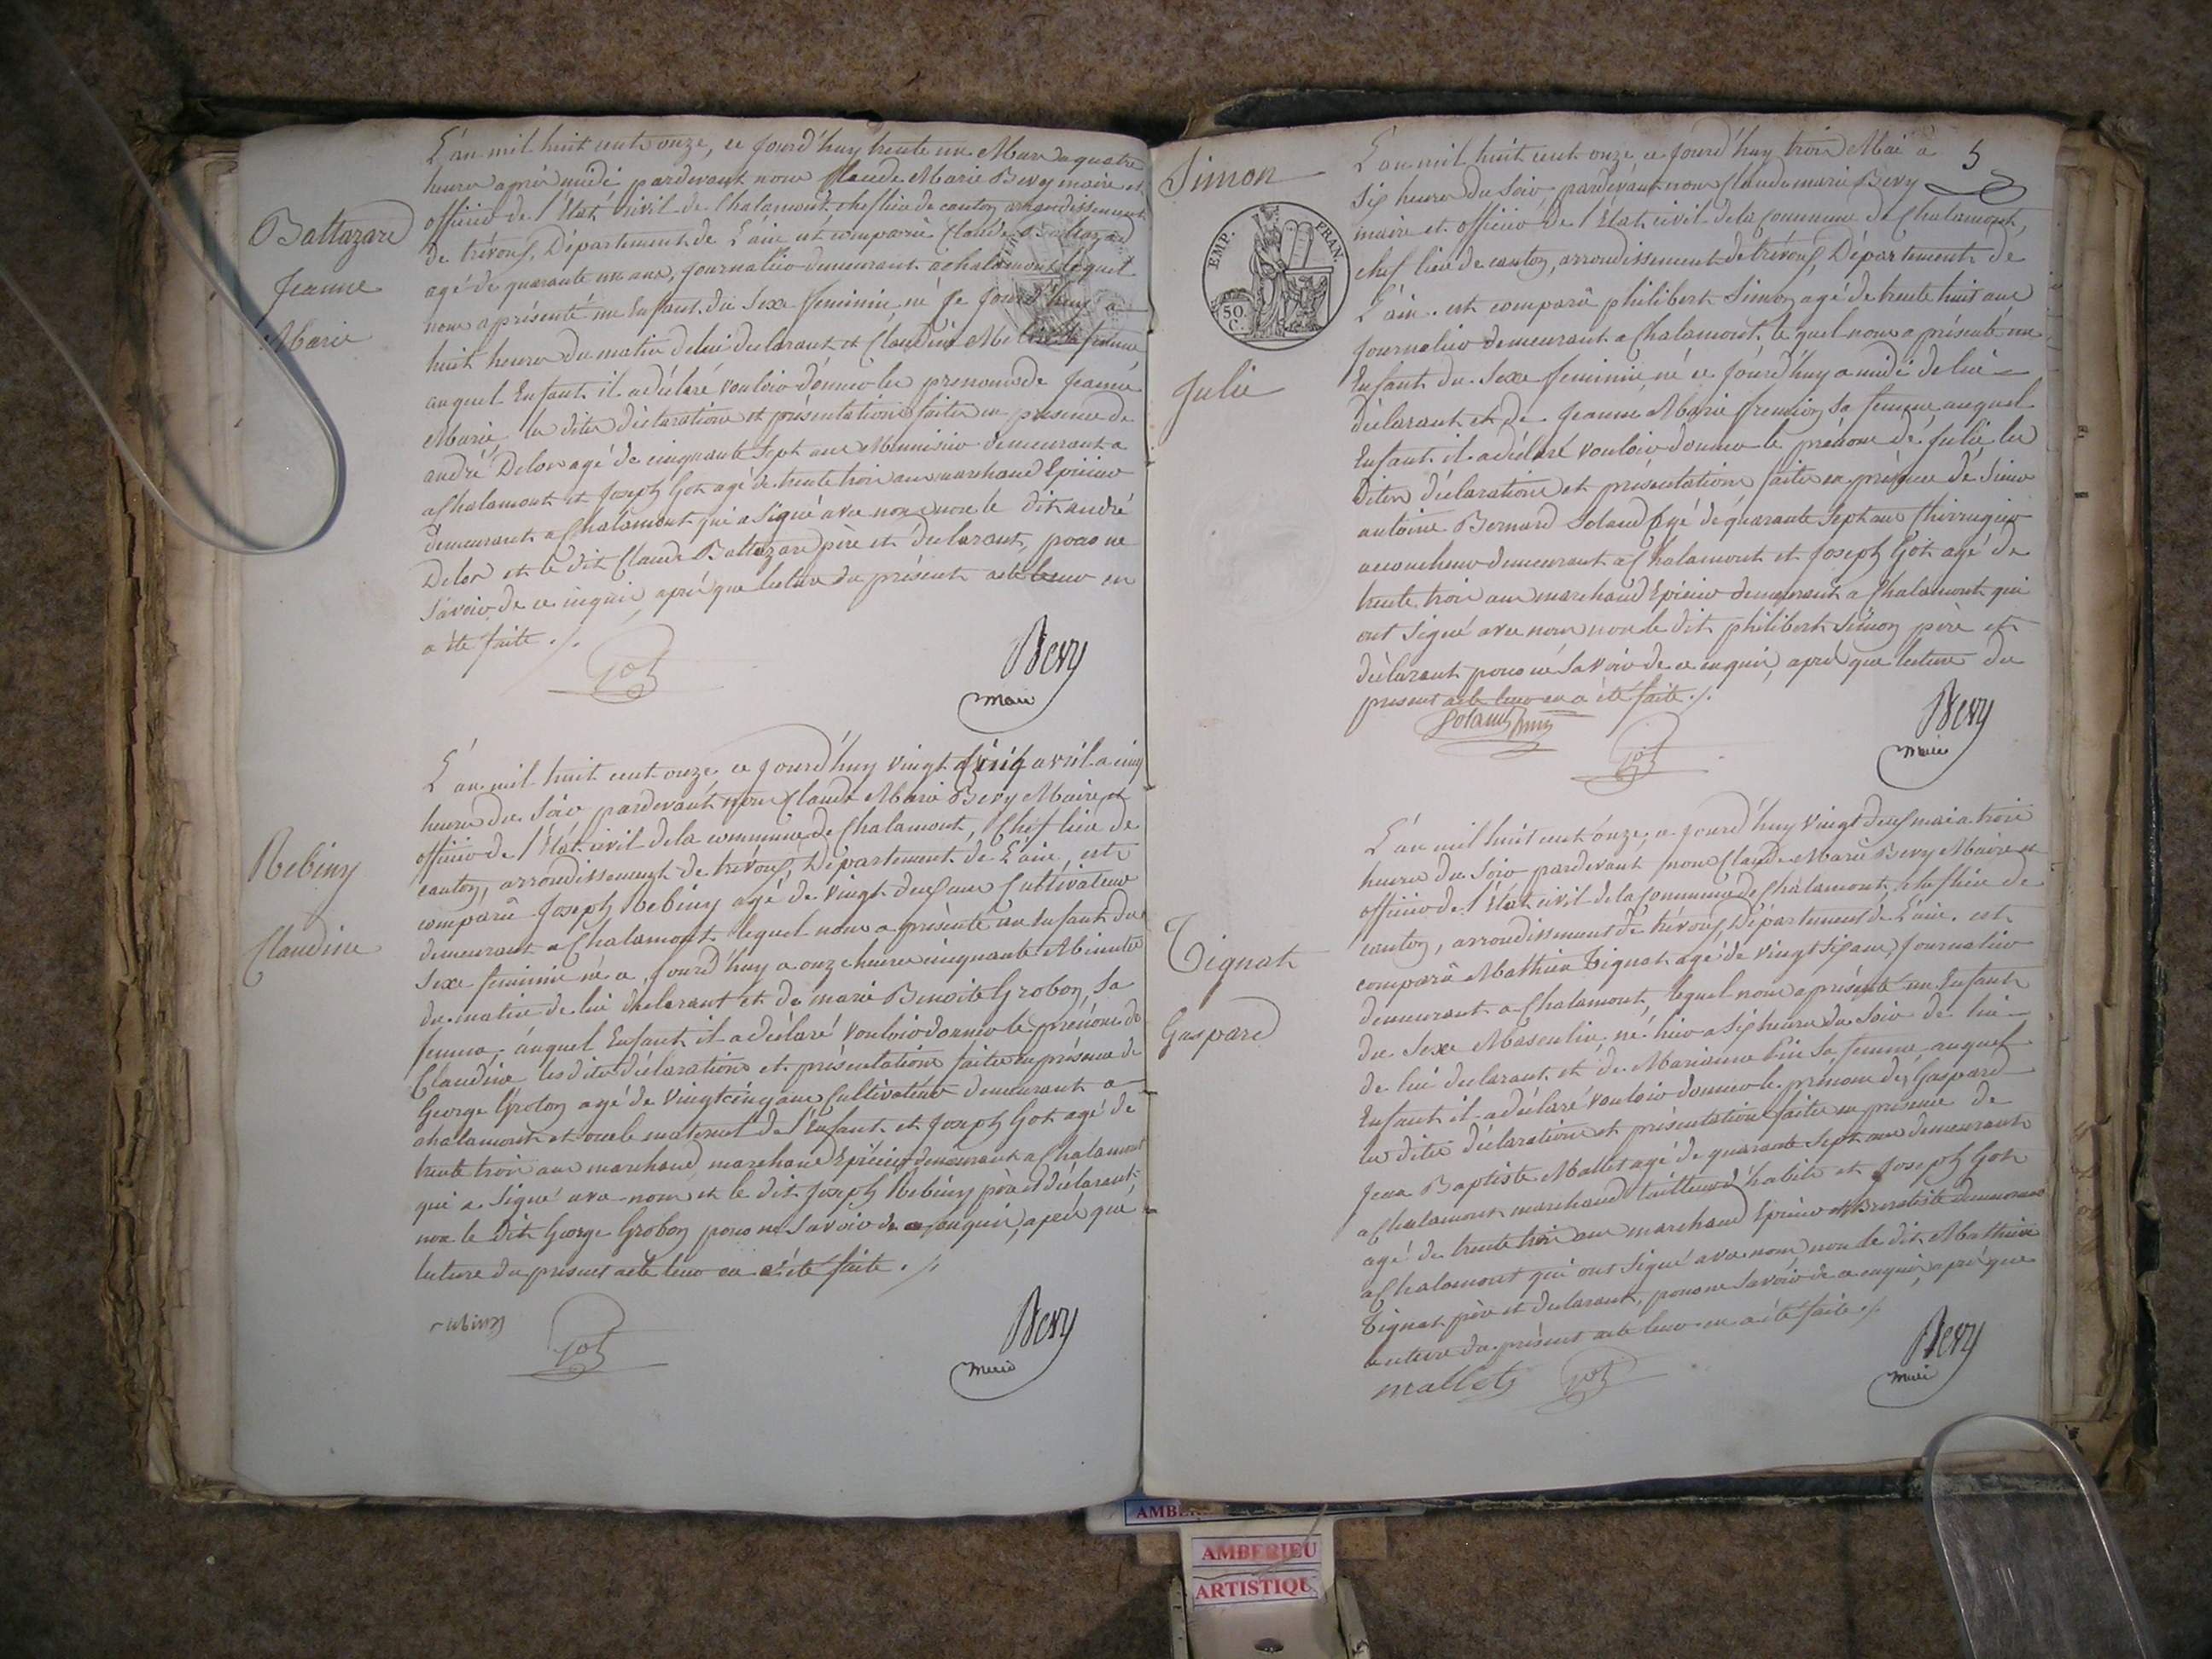 Baltazard
Jeanne
Marie
L'an mil huit cent onze, ce jourd'huy trente un Mars a quatre
heures après midi pardevant nous Claude Marie Bevy maire et
officier de l'état civil de Chalamont chef lieu de canton arrondissement
de trévoux, Département de L'ain est comparu Claude Baltazard
agé de quarante un ans, journalier demeurant a chalamont lequel
nous a présenté un Enfant du Sexe feminin, né ce jourd'huy a
huit heures du matin de lui declarant et Claudine sa femme
auquel Enfant il a déclaré vouloir donner les prenoms de Jeanne
Marie, les dites déclarations et présentations faites en presence de
andré Delor agé de cinquante Sept ans Menuisier demeurant a
a Chalamont et Joseph Got agé de trente trois ans marchand Epicier
demeurant a Chalamont qui a signé avec nous non le dit andré
Delor et le dit Claude Baltazard père et déclarant, pour ne
savoir de ce enquis, après que lecture du présent acte leur en
a été faite ./.
Got
Bevy
maire
Rebiny
Claudine
L'an mil huit cent onze ce jourd'huy vingt cinq avril a cinq
heures du Soir, pardevant nous Claude Marie Bevy Maire et
officier de l'état civil de la commune de Chalamont, Chef lieu de
canton, arrondissement de trévoux, Département de L'ain, est
comparu Joseph Rebiny agé de vingt deux ans Cultivateur
demeurant a Chalamont lequel nous a présenté un Enfant du
Sexe feminin né ce jourd'huy a onze heures cinquante Minutes
du matin de lui declarant et de marie Benoite Grobon, Sa
femme, auquel Enfant il a déclaré vouloir donner le prénom de
Claudine les dites déclarations et présentations faites en présence de
George Grobon agé de vingt cinq ans Cultivateur demeurant a
chalamont et oncle maternel de l'Enfant et Joseph Got agé de
trente trois ans marchand marchand Epicier demeurant a Chalamont
qui a signé avec nous et le dit Joseph Rebiny père et déclarant
non le dit George Grobon pour ne savoir de ce enquis, après que
lecture du présent acte leur en a été faite ./.
rebiny
Got
Bevy
maire
5
Simon
EMP. FRAN.
50 C.
Julie
L'an mil huit cent onze, ce jourd'huy trois Mai à
Six heures du Soir pardevant nous Claude marie Bevy
maire et officier de l'état civil de la Commune de Chalamont,
chef lieu de canton, arrondissement de trévoux, Département de
L'ain. est comparu philibert Simon agé de trente huit ans
journalier demeurant a Chalamont, lequel nous a présenté un
Enfant du Sexe feminin, né ce jourd'huy a midi de lui
Déclarant et de Jeanne Marie fremion sa femme auquel
Enfant il a déclaré vouloir donner le prénom de Julie les
dites déclarations et présentations faites en présence de Sieur
antoine Bernard Soland agé de quarante Sept ans Chirurgien
accoucheur demeurant a Chalamont et Joseph Got agé de
trente trois ans marchand Epicier demeurant a Chalamont qui
ont signé avec nous non le dit philibert Simon père et
déclarant pour ne savoir de ce enquis, après que lecture du
present acte leur en a été faite ./.
Soland
Got
Bevy
maire
Tignat
Gaspard
L'an mil huit cent onze, ce jourd'huy vingt deux mai a trois
heures du Soir pardevant nous Claude Marie Bevy Maire et
officier de l'état civil de la Commune de Chalamont, chef lieu de
canton, arrondissement de trévoux, Département de L'ain. est
comparu Mathieu Tignat agé de vingt Six ans, journalier
demeurant a Chalamont, lequel nous a présenté un Enfant
du Sexe Masculin, né hier a Six heures du Soir de lui
de lui declarant et de Marianne Sa femme auquel
Enfant il a déclaré vouloir donner le prénom de Gaspard
les dites déclarations et présentations faites en presence de
Jean Baptiste Mallet agé de quarante Sept ans demeurant
a Chalamont marchand tailleur d'habits et Joseph Got
agé de trente trois ans marchand Epicier et demeurant
a Chalamont qui ont signé avec nous, non le dit Mathieu
Tignat père et declarant, pour ne savoir de ce enquis, après que
lecture du présent acte leur en a été faite ./.
mallet
Got
Bevy
maire
AMBERIEU
ARTISTIQU